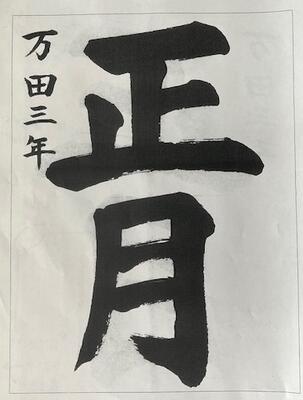 正月
万田三年